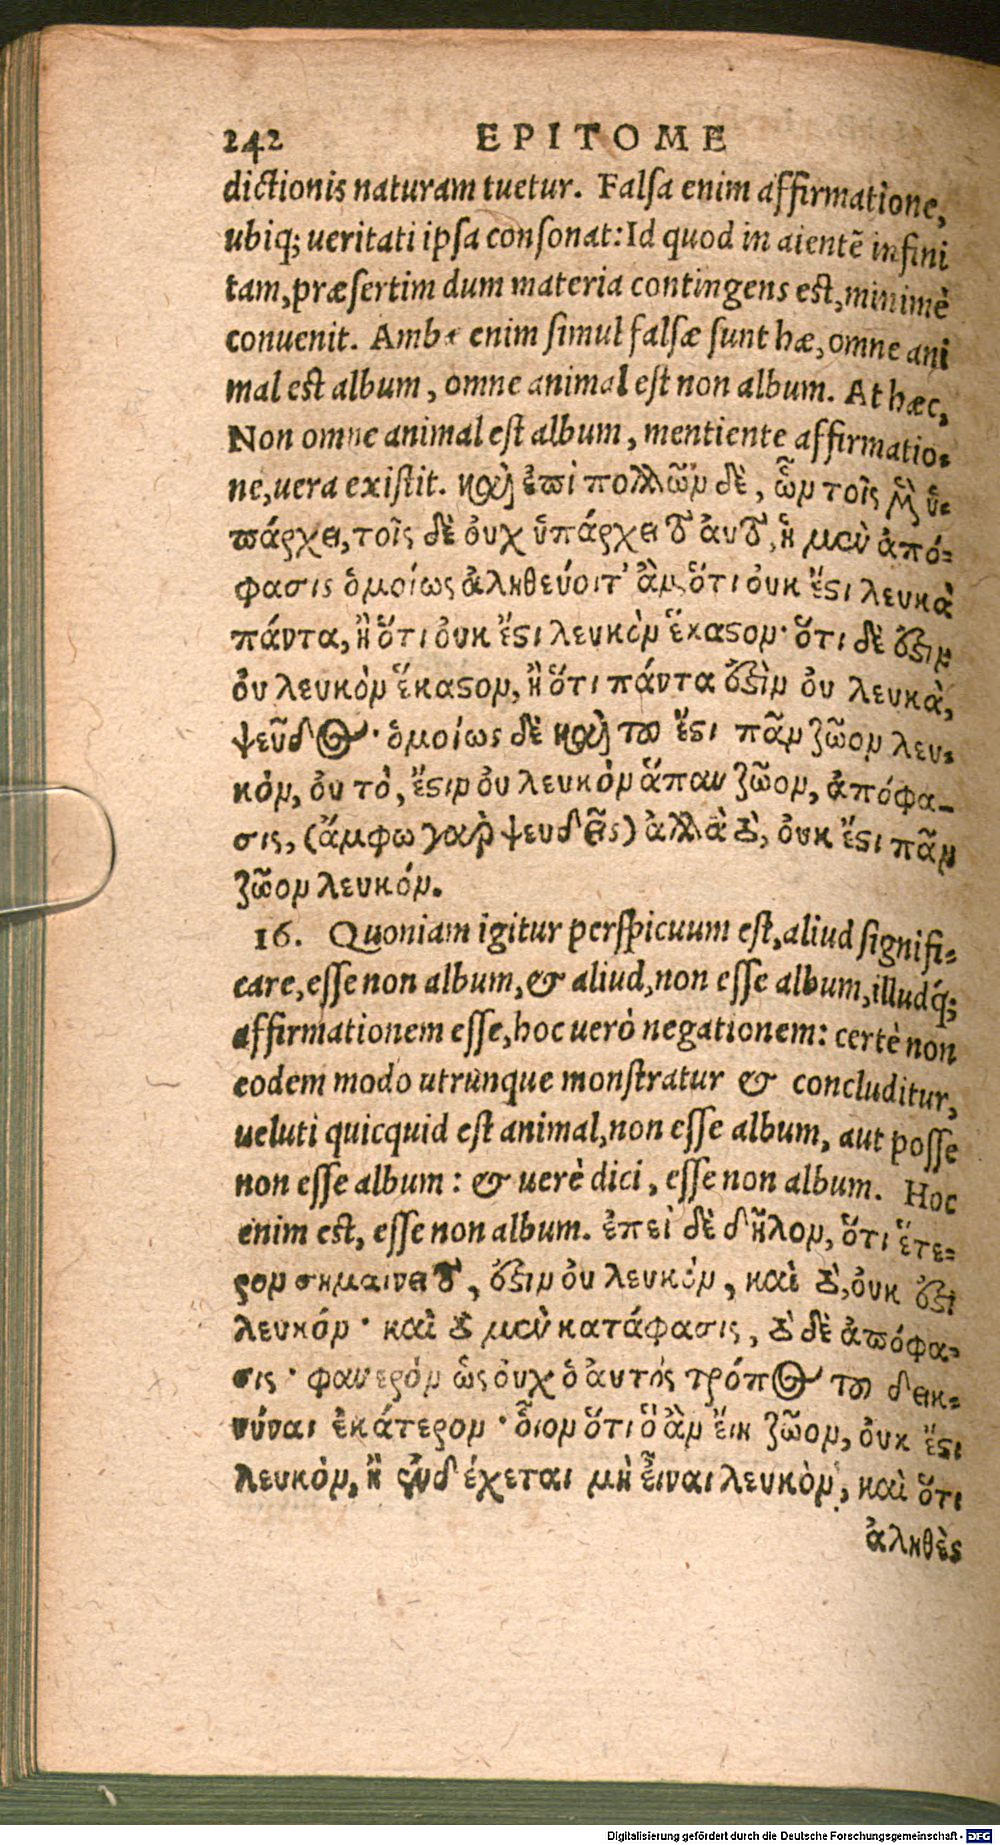 242 EPITOME
dictionis naturam tuetur. Falſa enim affirmatione,
ubiq; ueritati ipſa conſonat: Id quod in aientē infini
tam, præſertim dum materia contingens eſt, minimè
conuenit. Ambæ enim ſimul falſæ ſunt hæ, omne ani
mal eſt album, omne animal eſt non album. At hæc,
Non omne animal eſt album, mentiente affirmatio-
ne, uera exiſtit. καὶ ἐπὶ πολλῶν δὲ, ὧν τοῖς μὲν ὑ-
πάρχει, τοῖς δὲ οὐχ ὑπάρχει τὸ αὐτὸ, ἡ μὲν ἀπό-
φασις ὁμοίως ἀληθεύοιτ' ἂν, ὅτι οὐκ ἔςι λευκὰ
πάντα, ἢ ὅτι οὐκ ἔςι λευκὸν ἕκαςον· ὅτι δὲ ἐςὶν
οὐ λευκὸν ἕκαςον, ἢ ὅτι πάντα ἐςὶν οὐ λευκὰ,
ψεῦδος· ὁμοίως δὲ καὶ τοῦ ἔςι πᾶν ζῶον λευ-
κόν, οὐ τὸ, ἔςιν οὐ λευκὸν ἅπαν ζῶον, ἀπόφα-
σις, (ἄμφω γαρ ψευδεῖς) ἀλλὰ τὸ, οὐκ ἔςι πᾶν
ζῶον λευκόν.
16. Quoniam igitur perſpicuum eſt, aliud ſignifi-
care, eſſe non album, & aliud, non eſſe album, illudq́;
affirmationem eſſe, hoc uerò negationem: certè non
eodem modo utrunque monſtratur & concluditur,
ueluti quicquid eſt animal, non eſſe album, aut poſſe
non eſſe album: & uerè dici, eſſe non album. Hoc
enim eſt, eſſe non album. ἐπεὶ δὲ δῆλον, ὅτι ἕτε-
ρον σημαίνει τὸ, ἐςὶν οὐ λευκόν, καὶ τὸ, οὐκ ἐςὶ
λευκόν· καὶ τὸ μὲν κατάφασις, τὸ δὲ ἀπόφα-
σις· φανερὸν ὡς οὐχ ὁ αὐτὸς τρόπος τοῦ δεικ-
νύναι ἑκάτερον· οἷον ὅτι ὃ ἂν εἴη ζῶον, οὐκ ἔςι
λευκὸν, ἢ ἐνδέχεται μὴ εἶναι λευκὸν, καὶ ὅτι
ἀληθὲς
Digitalisierung gefördert durch die Deutsche Forschungsgemeinschaft - DFG